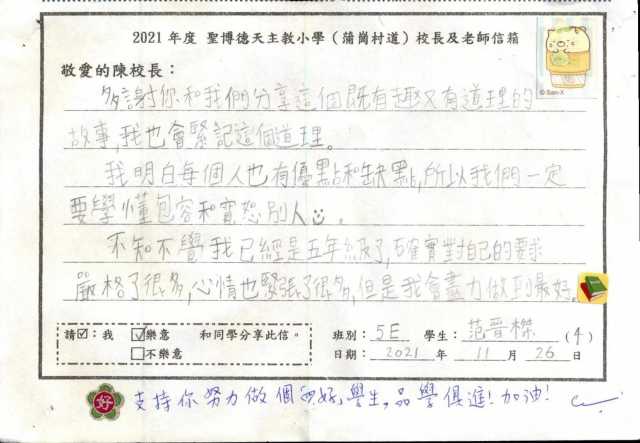 2021 年度 聖博德天主教小學（蒲崗村道）校長及老師信箱
敬愛的陳校長：
© San-X
多謝你和我們分享這個既有趣又有道理的
故事,我也會緊記這個道理。
我明白每個人也有優點和缺點,所以我們一定
要學懂包容和寬恕別人☺。
不知不覺我已經是五年級了,確實對自己的要求
嚴格了很多,心情也緊張了很多,但是我會盡力做到最好。
請☑：我 ☑樂意 和同學分享此信。
□不樂意
班別：5E 學生：范晉榤 (4)
日期：2021 年 11 月 26 日
好 支持你努力做個好學生,品學俱進!加油!